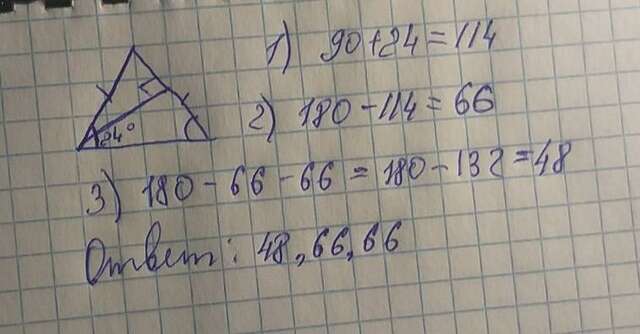 24°
1) 90+24=114
2) 180-114=66
3) 180-66-66=180-132=48
Ответ: 48, 66, 66